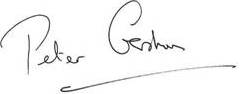 Peter Gershon